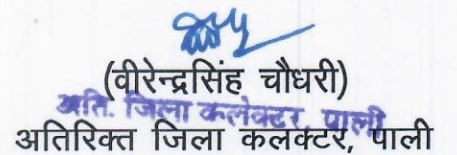 (वीरेन्द्रसिंह चौधरी)
अति. जिला कलेक्टर, पाली
अतिरिक्त जिला कलक्टर, पाली